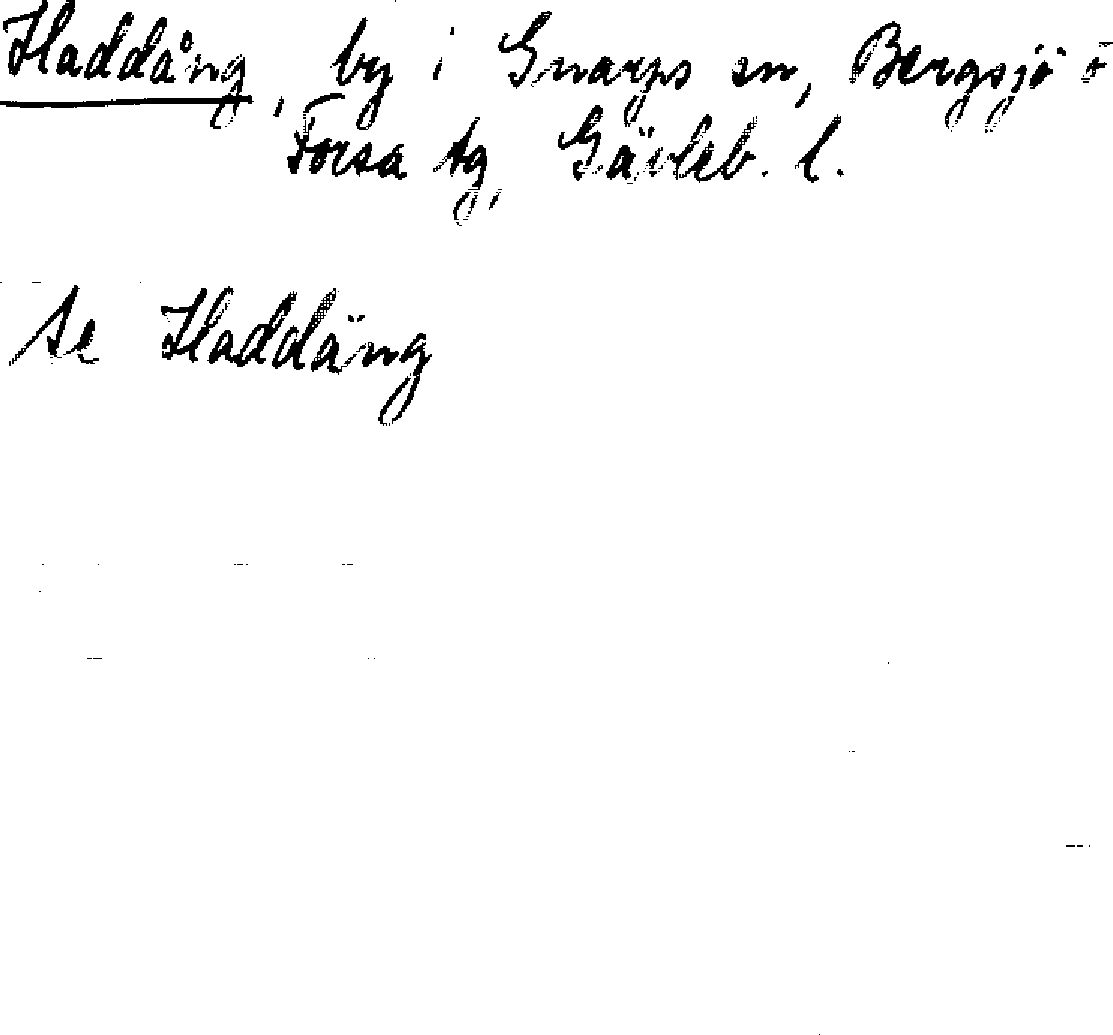 Haddång, by i Gnarps sn, Bergsjö o
Forsa tg, Gävleb. l.
se Haddäng